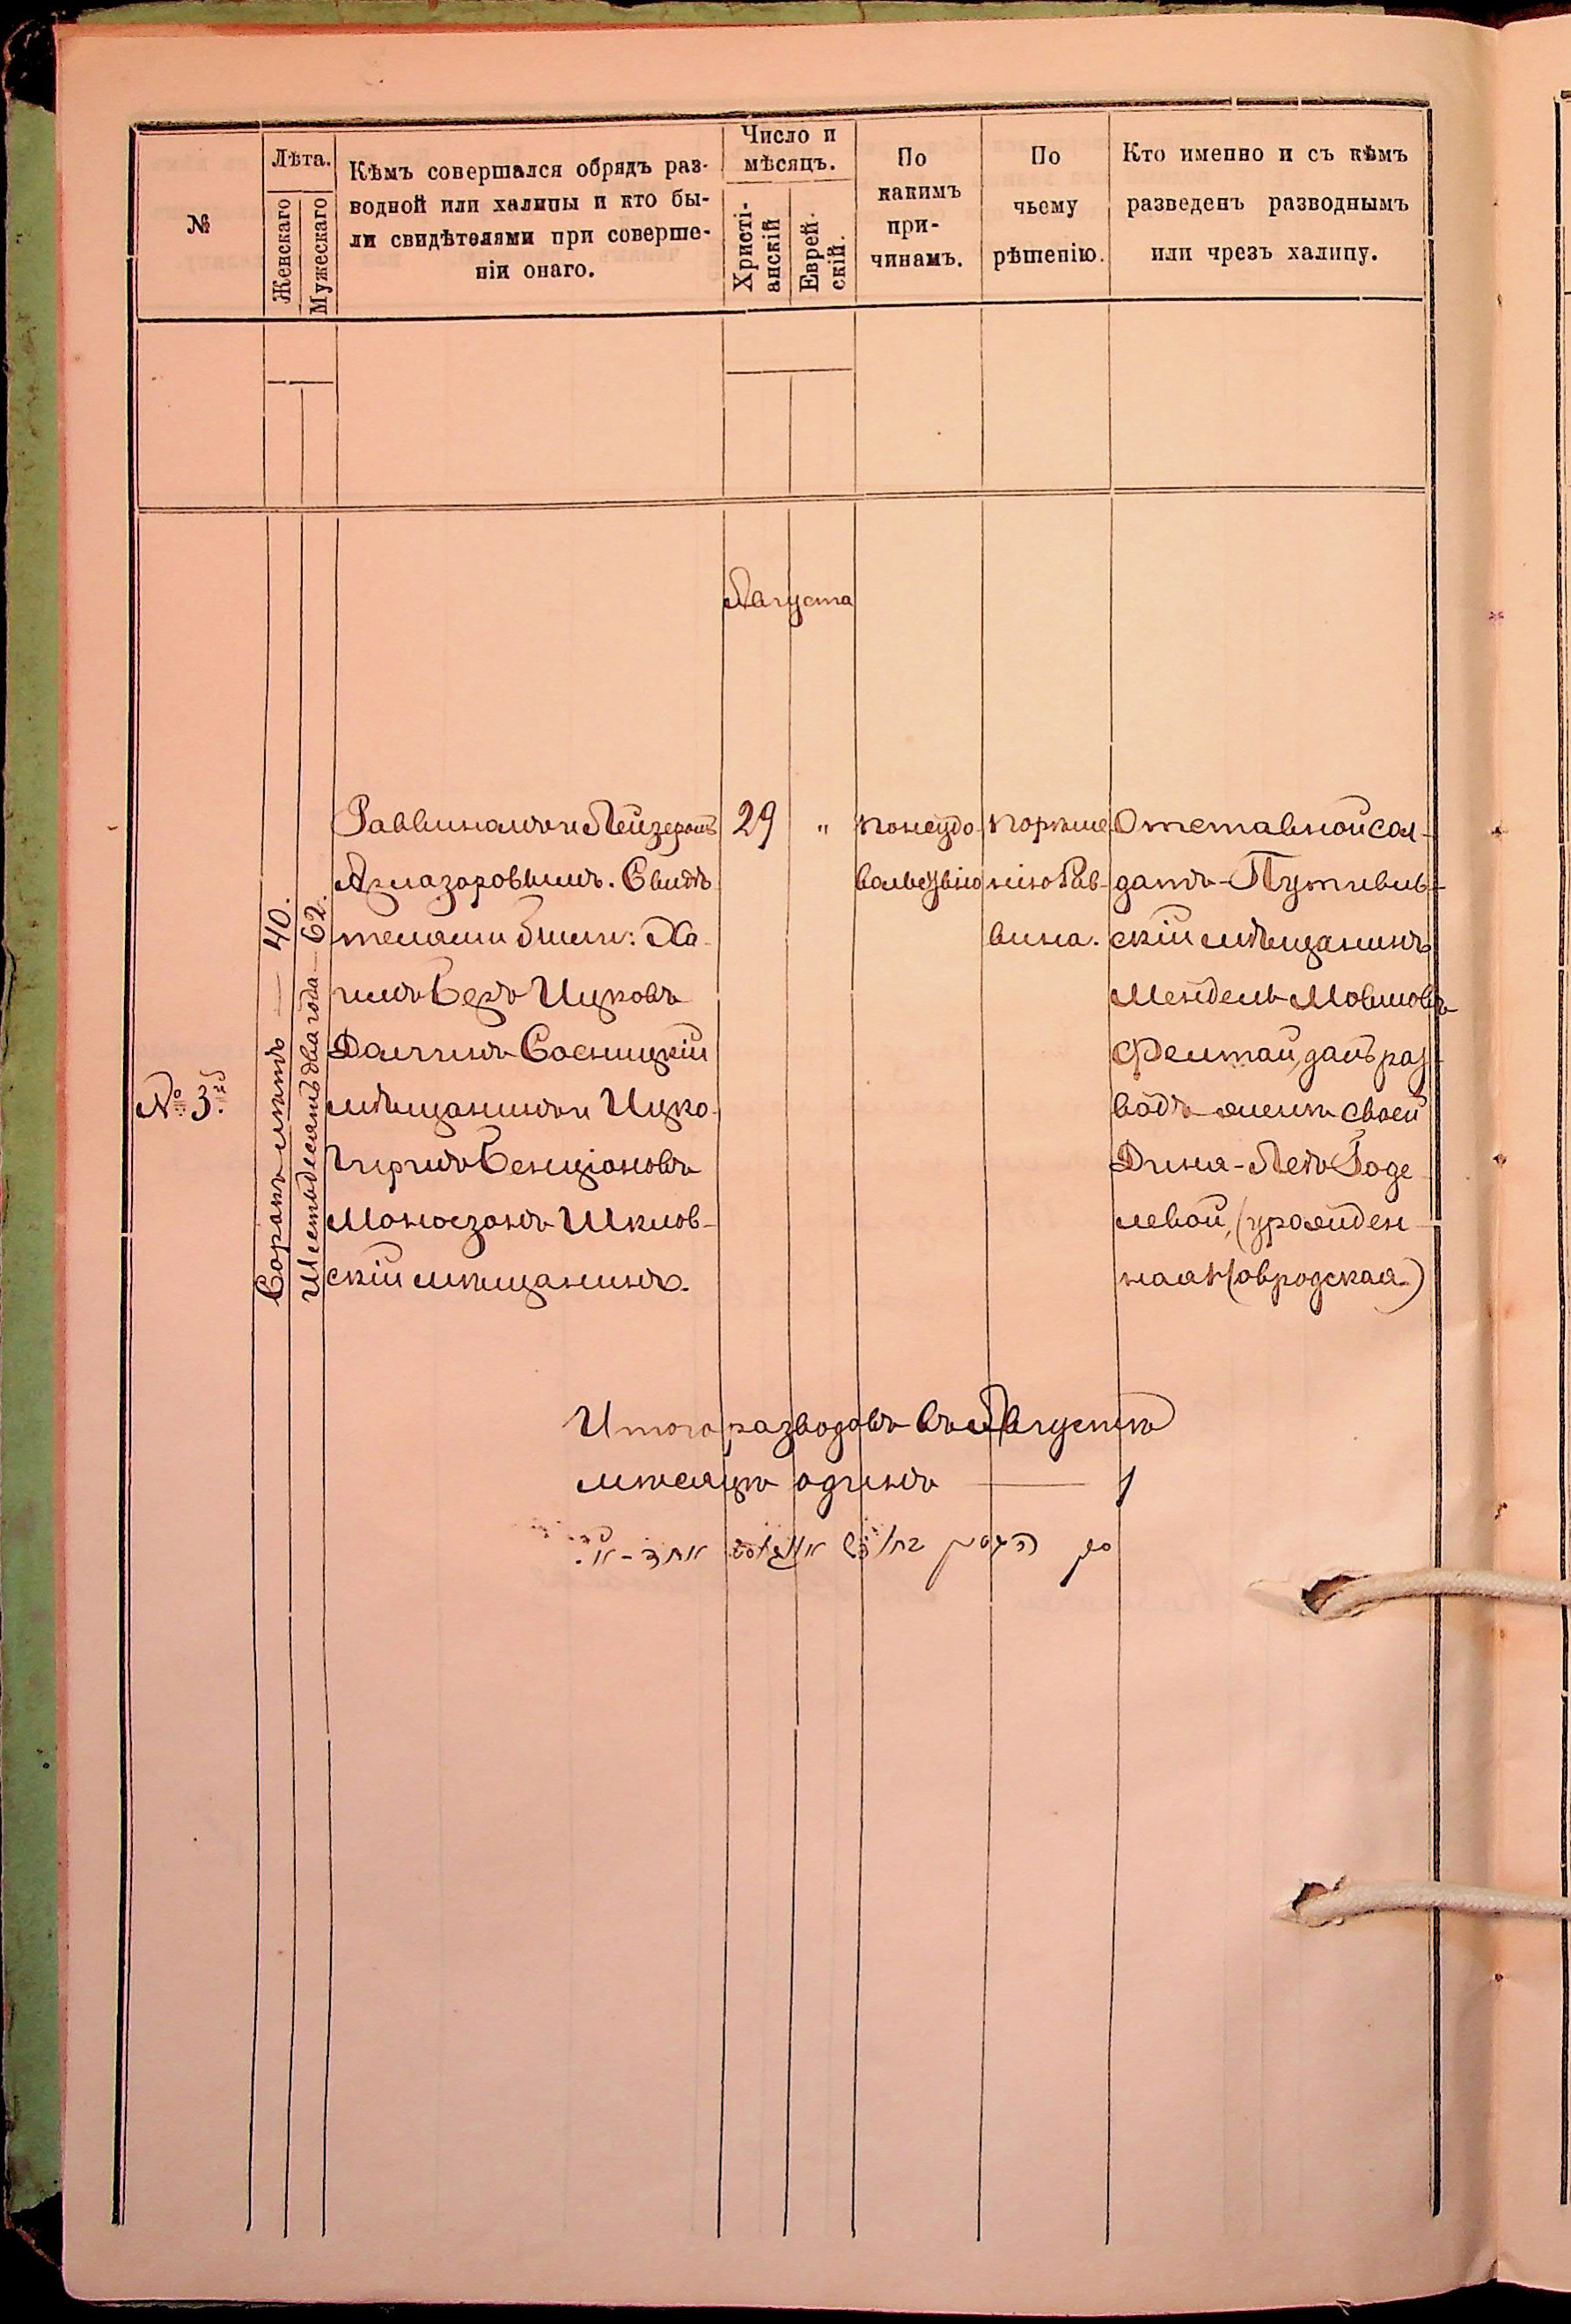 №
Лѣта.
Женскаго
Мужескаго
Кѣмъ совершался обрядъ раз-
водной или халицы и кто бы-
ли свидѣтелями при соверше-
ніи онаго.
Число и
мѣсяцъ.
Христі-
анскій
Еврей-
скій.
По
какимъ
при-
чинамъ.
По
чьему
рѣшенію.
Кто именно и съ кѣмъ
разведенъ разводнымъ
или чрезъ халицу.
Августа
№ 3й
Сорокъ лѣтъ — 40.
Шестьдесятъ два года — 62.
Раввиномъ Лейзеромъ
Свидѣ-
телями были: Ха-
имъ Беръ Ицковъ
Долгинъ Сосницкій
мѣщанинъ и Ицко-
Гиршъ Бенціоновъ
Моносзонъ Шклов-
скій мѣщанинъ.
29
"
по неудо-
вольствію
по рѣше-
нію Рав-
вина.
Отставной сол-
датъ Путивль-
скій мѣщанинъ
Мендель Мовшовъ
далъ раз-
водъ женѣ своей
Година левой, (урожден-
ная
Итого разводовъ въ Августѣ
мѣсяцѣ одинъ — 1